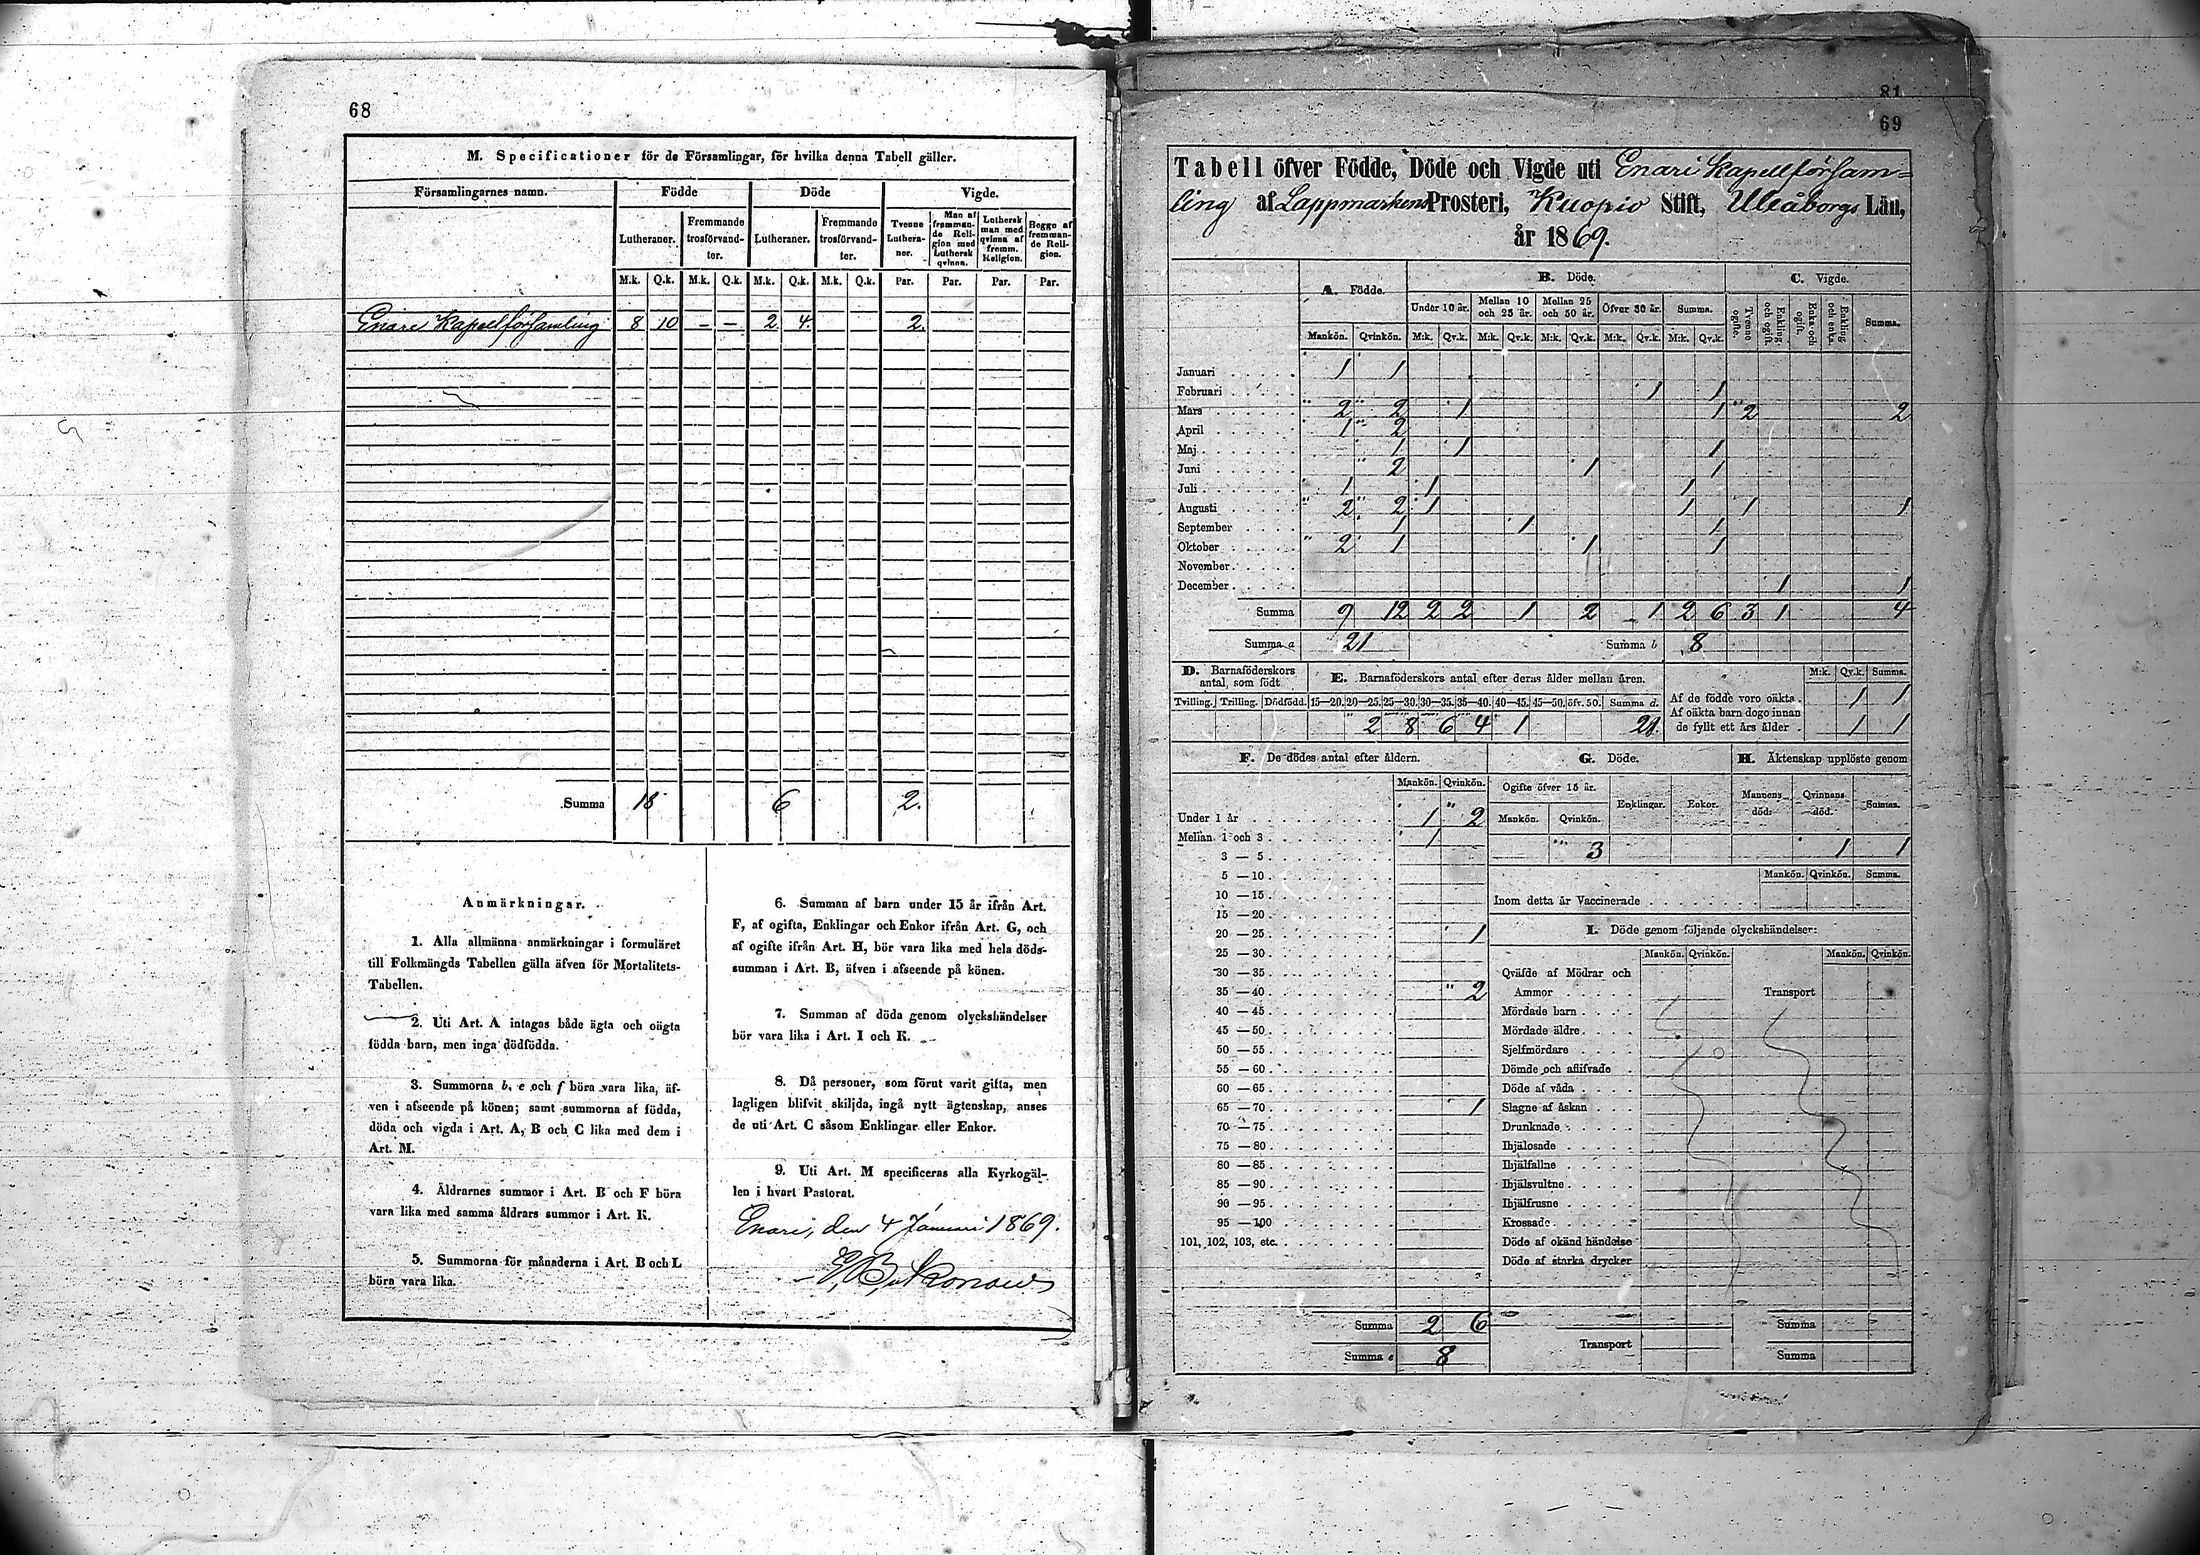 68
M. Specificationer för de Församlingar, för hvilka denna Tabell gäller.
Församlingarnes namn. Födde Döde Vigde.
Lutheraner. Fremmande trosförvandter. Lutheraner. Fremmande trosförvandter. Tvenne Lutheraner. Man af fremmande Religion med Luthersk qvinna. Luthersk man med qvinna af fremm. Religion. Begge af fremmande Religion.
M.k. Q.k. M.k. Q.k. M.k. Q.k. M.k. Q.k. Par. Par. Par. Par.
Enare Kapellförsamling 8 10 – – 2 4. 2.
Summa 18 6 2.
Anmärkningar.
1. Alla allmänna anmärkningar i formuläret
till Folkmängds Tabellen gälla äfven för Mortalitets-
Tabellen.
2. Uti Art. A intagas både ägta och oägta
födda barn, men inga dödfödda.
3. Summorna b, e och f böra vara lika, äf-
ven i afseende på könen; samt summorna af födda,
döda och vigda i Art. A, B och C lika med dem i
Art. M.
4. Äldrarnes summor i Art. B och F böra
vara lika med samma åldrars summor i Art. K.
5. Summorna för månaderna i Art. B och L
böra vara lika.
6. Summan af barn under 15 år ifrån Art.
F, af ogifta, Enklingar och Enkor ifrån Art. G, och
af ogifte ifrån Art. H, bör vara lika med hela döds-
summan i Art. B, äfven i afseende på könen.
7. Summan af döda genom olyckshändelser
bör vara lika i Art. I och K.
8. Då personer, som förut varit gifta, men
lagligen blifvit skiljda, ingå nytt ägtenskap, anses
de uti Art. C såsom Enklingar eller Enkor.
9. Uti Art. M specificeras alla Kyrkogäl-
len i hvart Pastorat.
Enare, den 4 Januari 1869.
81
69
Tabell öfver Födde, Döde och Vigde uti Enari Kapellförsam=
ling af Lappmarkens Prosteri, Kuopio Stift, Uleåborgs Län,
år 1869.
A. Födde. B. Döde. C. Vigde.
Under 10 år. Mellan 10 och 25 år. Mellan 25 och 50 år. Öfver 50 år. Summa. Tvenne ogifte. Enkling och ogift. Enka och ogift. Enkling och enka. Summa.
Mankön. Qvinkön. M:k. Qv.k. M:k. Qv.k. M:k. Qv.k. M:k. Qv.k. M:k. Qv.k.
Januari 1 1
Februari 1 1
Mars 2 2 1 1 2 2
April 1 2
Maj 1 1 1
Juni 2 1 1
Juli 1 1 1
Augusti 2 2 1 1 1 1
September 1 1 1
Oktober 2 1 1 1
November
December 1 1
Summa 9 12 2 2 1 2 1 2 6 3 1 4
Summa a 21 Summa b 8
D. Barnaföderskors antal, som födt
Tvilling. Trilling. Dödfödd.
E. Barnaföderskors antal efter deras ålder mellan åren.
15—20. 20—25. 25—30. 30—35. 35—40. 40—45. 45—50. öfv. 50. Summa d.
2 8 6 4 1 21.
M:k. Qv.k. Summa.
Af de födde voro oäkta 1 1
Af oäkta barn dogo innan
de fyllt ett års ålder 1 1
F. De dödes antal efter åldern.
Mankön. Qvinkön.
Under 1 år 1 2
Mellan 1 och 3 1
3 — 5
5 — 10
10 — 15
15 — 20
20 — 25 1
25 — 30
30 — 35
35 — 40 2
40 — 45
45 — 50
50 — 55
55 — 60
60 — 65
65 — 70 1
70 — 75
75 — 80
80 — 85
85 — 90
90 — 95
95 — 100
101, 102, 103, etc.
Summa 2 6
Summa e 8
G. Döde.
Ogifte öfver 15 år. Enklingar. Enkor.
Mankön. Qvinkön.
3
H. Äktenskap upplöste genom
Mannens död. Qvinnans död. Summa.
1 1
Mankön. Qvinkön. Summa.
Inom detta år Vaccinerade
I. Döde genom följande olyckshändelser:
Mankön. Qvinkön. Mankön. Qvinkön.
Qväfde af Mödrar och
Ammor Transport
Mördade barn
Mördade äldre
Sjelfmördare
Dömde och aflifvade
Döde af våda
Slagne af åskan
Drunknade
Ihjälosade
Ihjälfallne
Ihjälsvultne
Ihjälfrusne
Krossade
Döde af okänd händelse
Döde af starka drycker
Summa
Transport Summa